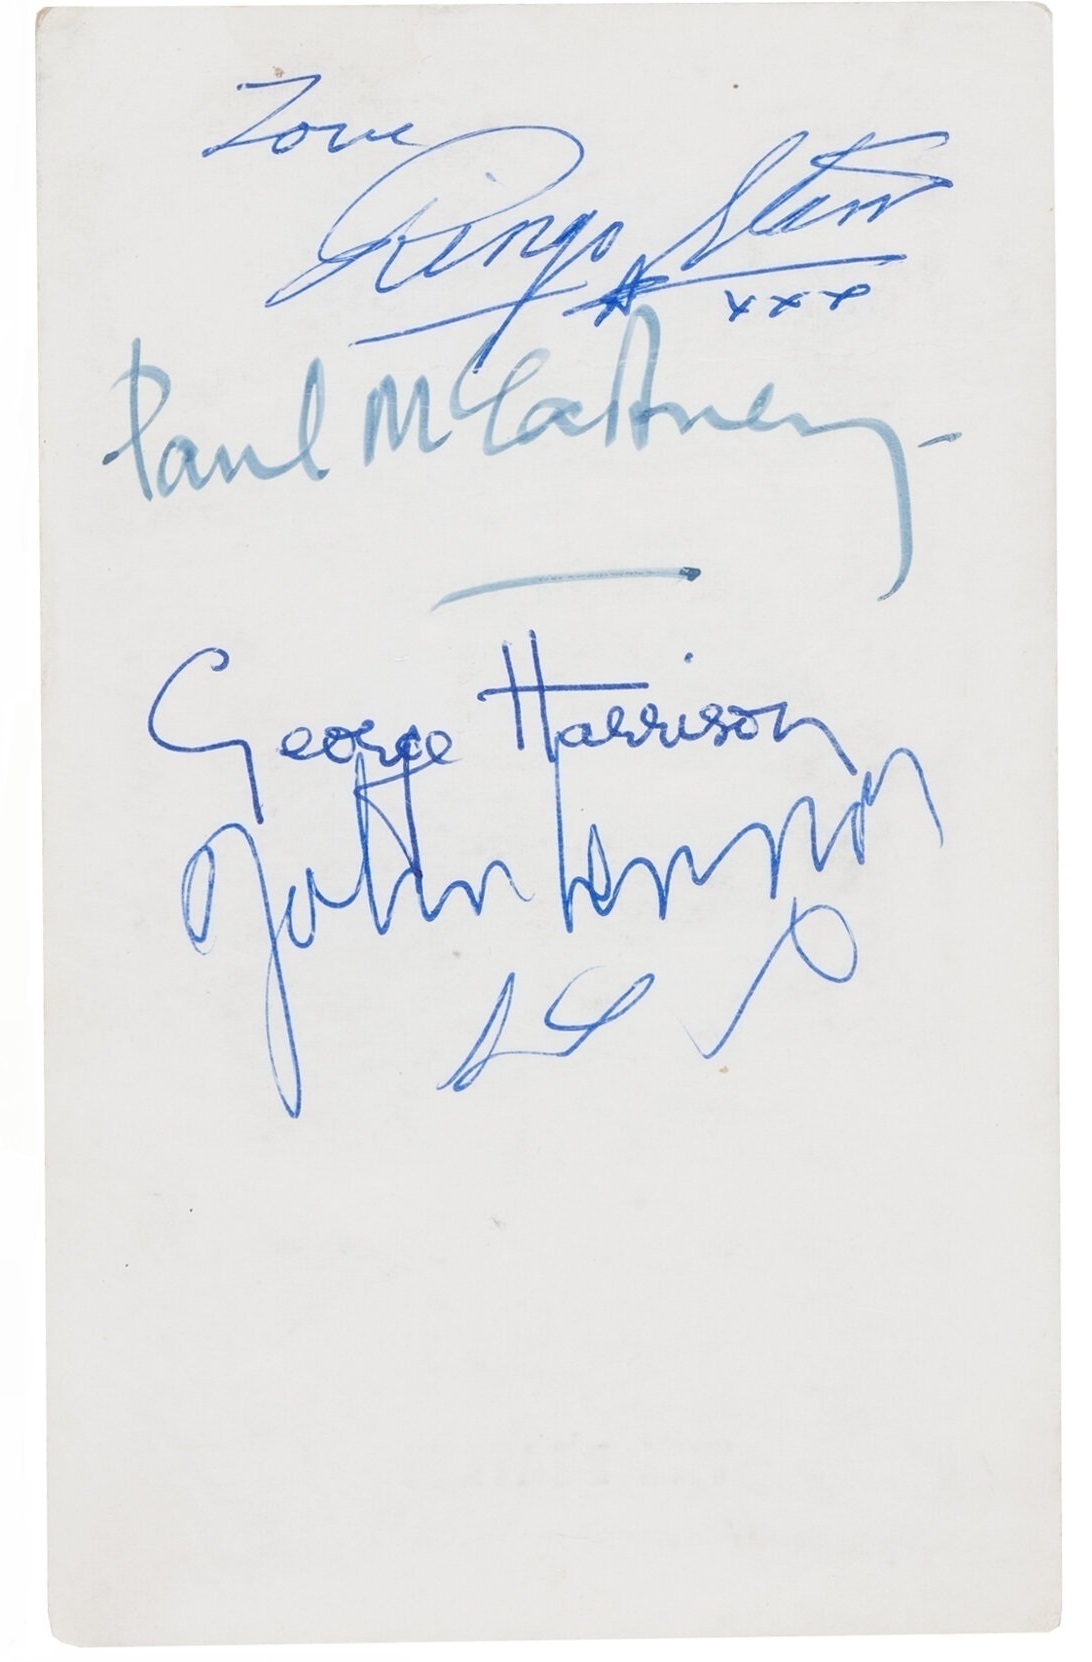 Love
Ringo Starr
xxx
Paul McCartney
George Harrison
John Lennon